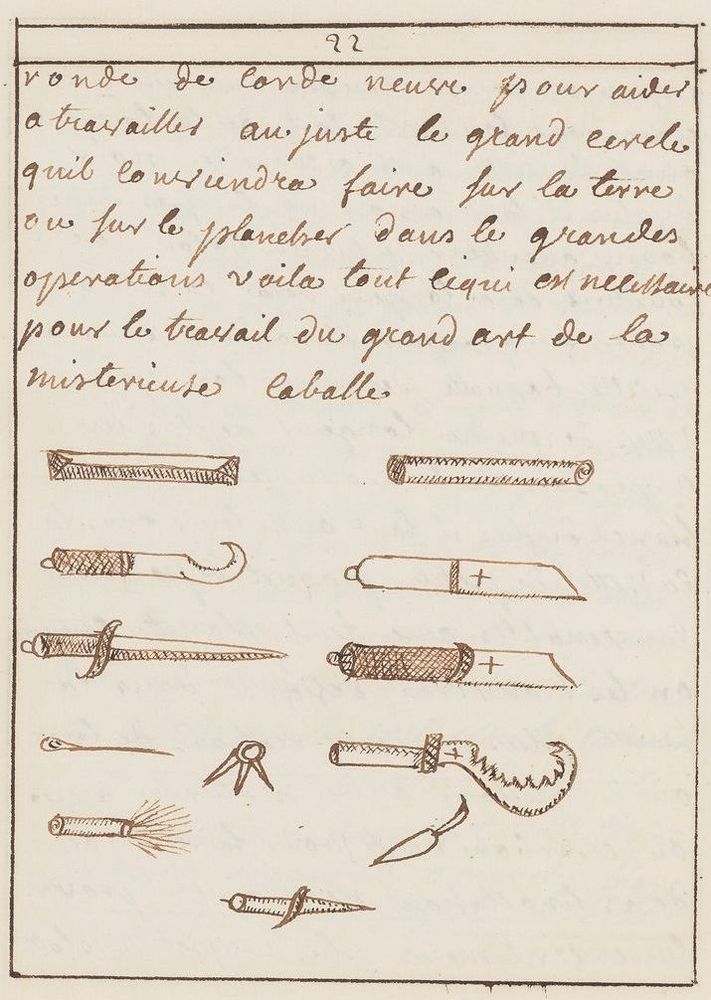 22
ronde de corde neuve pour aider
a travailler au juste le grand cercle
quil conviendra faire sur la terre
ou sur le plancher dans le grandes
operations voila tout cequi est nelessaire
pour le travail du grand art de la
misterieuse caballe